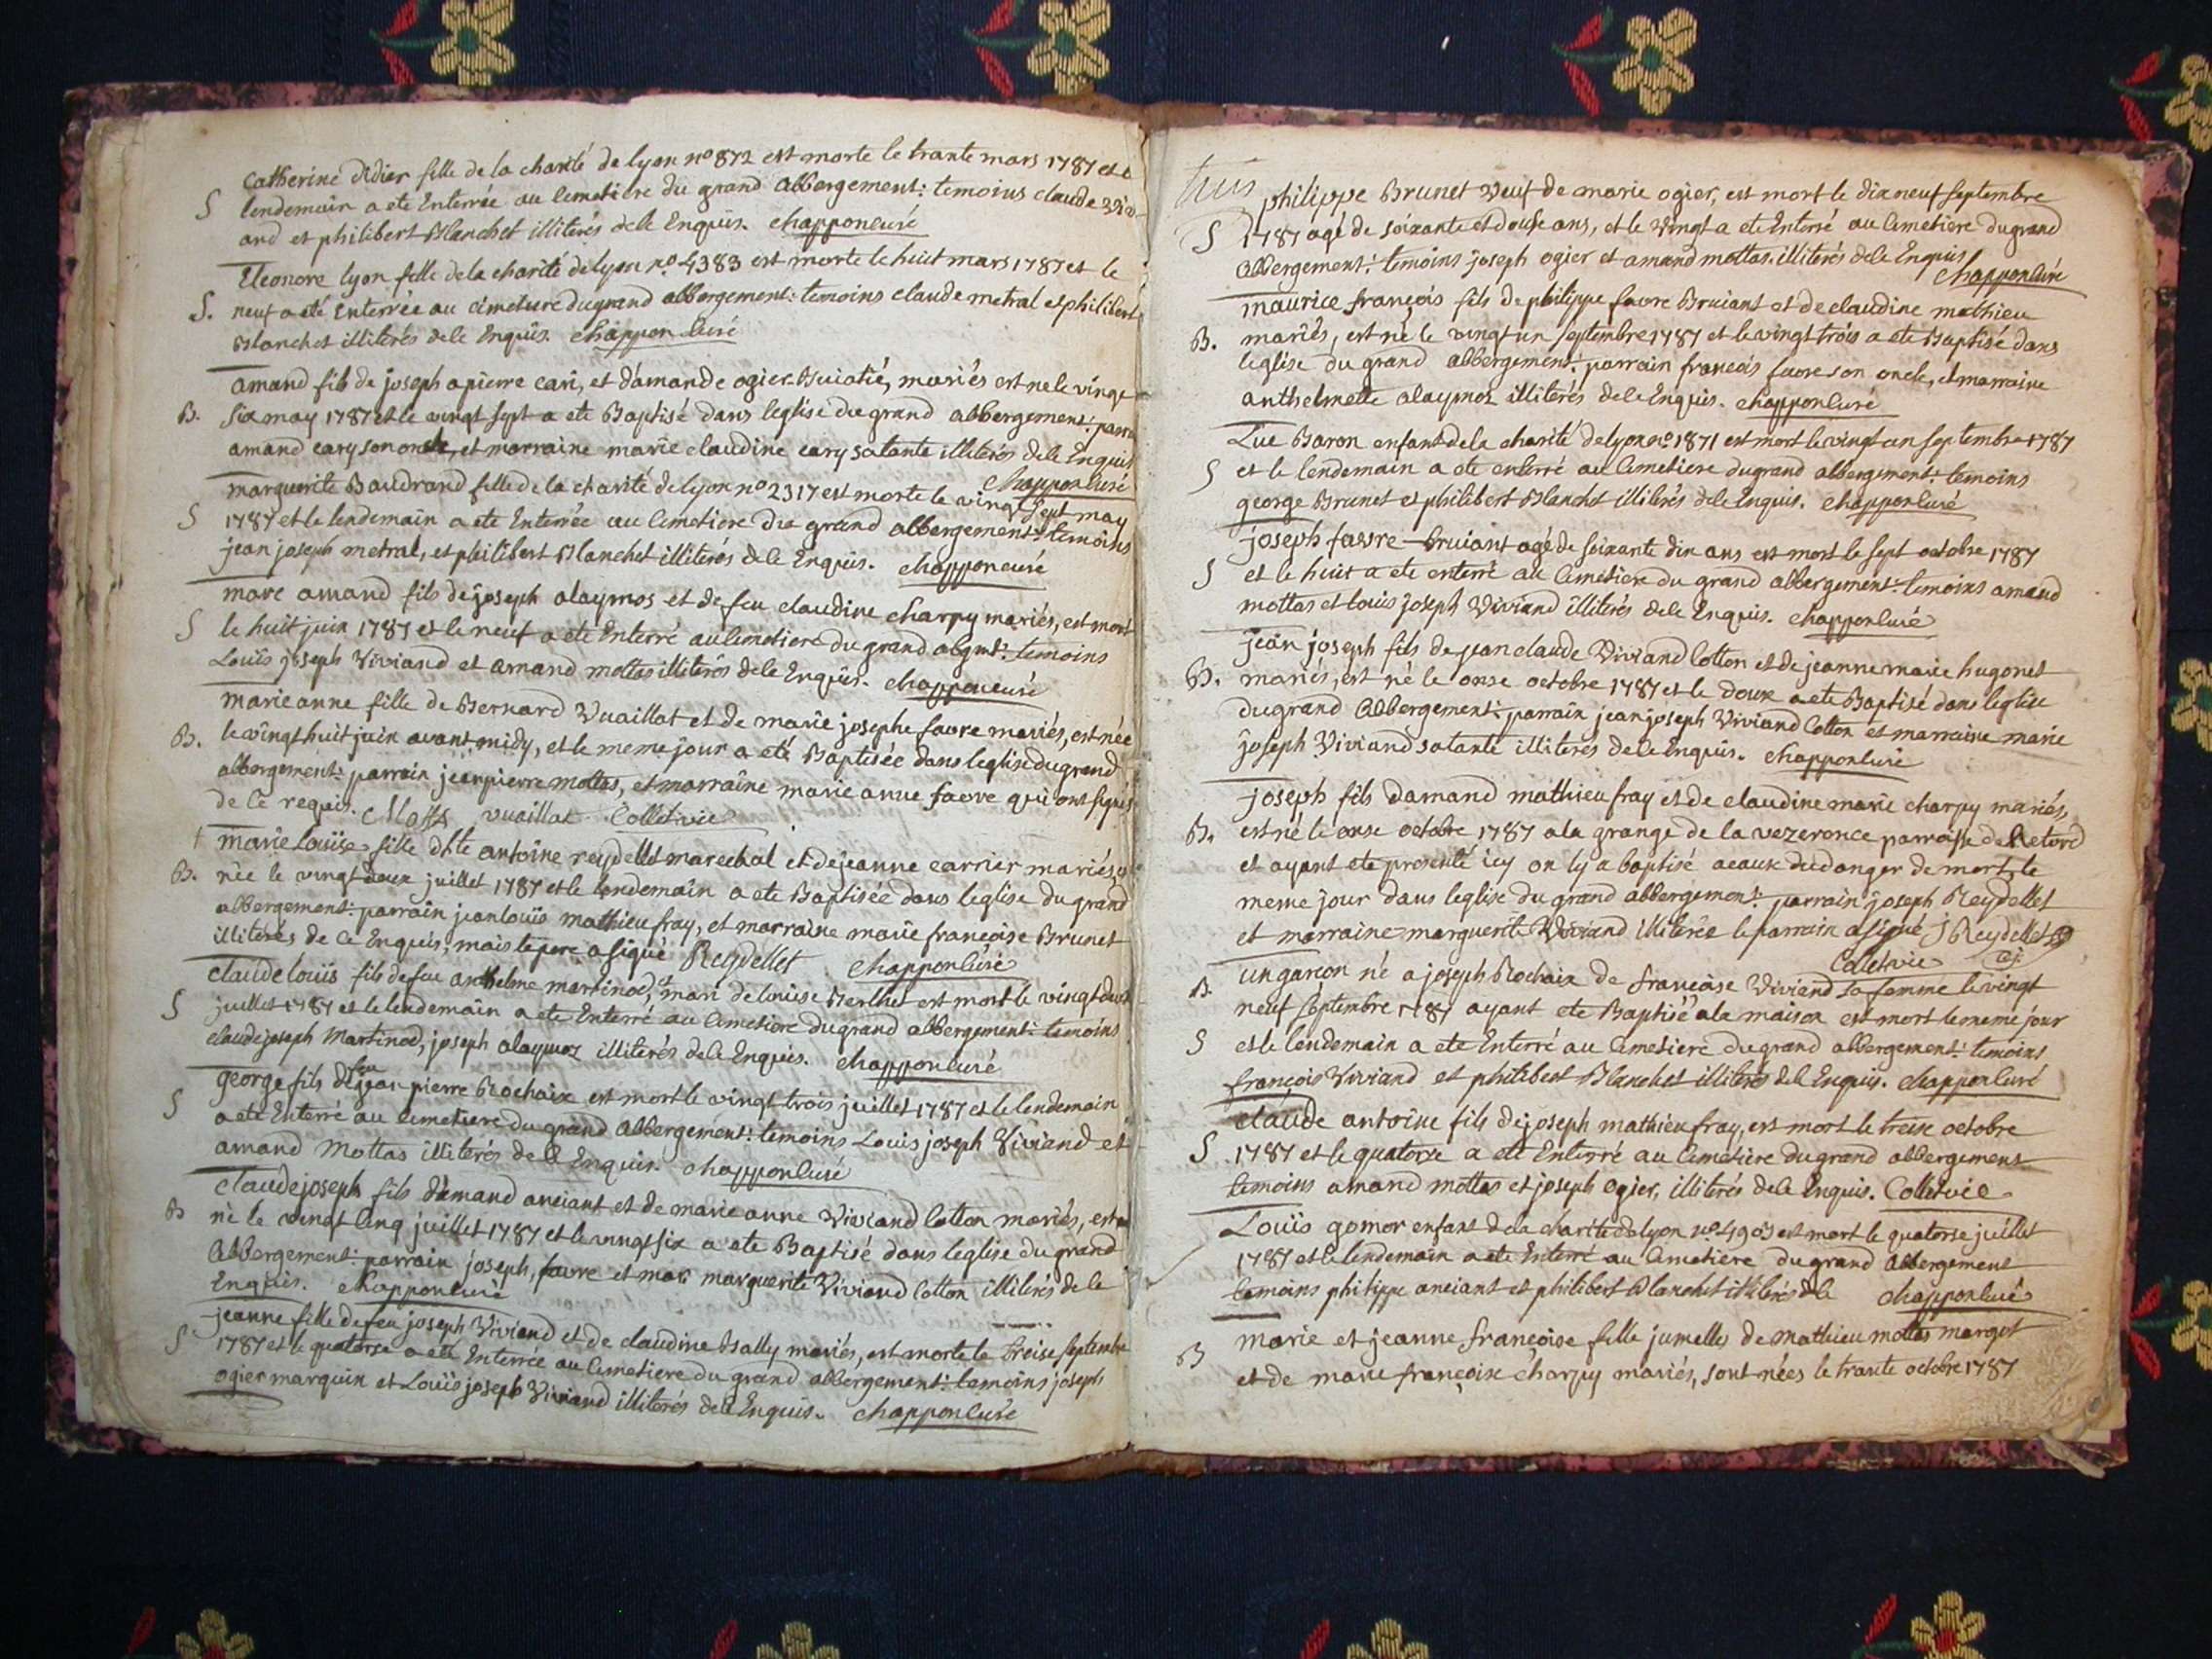 Catherine didier fille de la charité de lyon nº 872 est morte le trante mars 1787 et le
S lendemain a ete Enterrée au Cemetiere du grand abbergement: temoins claude Vivi-
and et philibert Blanchet illiterés de le Enquis. chappon curé
Eleonore lyon fille de la charité de lyon nº 4383 est morte le huit mars 1787 et le
S. neuf a eté Enterrée au cimetiere du grand abbergement: temoins claude metral et philibert
Blanchet illiterés de le Enquis. chappon curé
amand fils de joseph apierre cari, et d'amande ogier Buiatié, mariés est ne le vingt
B. six may 1787 et le vingt sept a ete Baptisé dans leglise du grand abbergement: parrain
amand cary son oncle, et marraine marie claudine cary sa tante illiterés de le Enquis
chappon curé
marguerite Baudrand fille de la charité de lyon nº 2317 est morte le vingt sept may
S 1787 et le lendemain a ete Enterrée au Cemetiere du grand abbergement: temoins
jean joseph metral, et philibert Blanchet illiterés de le Enquis. chappon curé
marc amand fils de joseph alaymoz et de feu claudine charpy mariés, est mort
S le huit juin 1787 et le neuf a ete Enterré au Cemetiere du grand abgmt: temoins
Louis joseph Viviand et amand mottas illiterés de le Enquis. chappon curé
marie anne fille de Bernard Vuaillat et de marie josephe favre mariés, est née
B. le vingt huit juin avant midy, et le meme jour a eté Baptisée dans leglise du grand
abbergement: parrain jean pierre mottas, et marraine marie anne favre qui ont signés
de ce requis. Motta vuaillat Collet vic
† marie Louise fille d'hte antoine reydellet marechal et de jeanne carrier mariés, est
B. née le vingt deux juillet 1787 et le lendemain a ete Baptisée dans leglise du grand
abbergement: parrain jean louis mathieu fray, et marraine marie françoise Brunet
illiterés de ce Enquis, mais le pere a signé Reydellet chappon curé
claude louis fils de feu anthelme martinod, et mari de louise Berthet est mort le vingt deux
S juillet 1787 et le lendemain a ete Enterré au Cemetiere du grand abbergement: temoins
claude joseph Martinod, joseph alaymoz illiterés de le Enquis. chappon curé
george fils de feu jean pierre Rochaix est mort le vingt trois juillet 1787 et le lendemain
S a ete Enterré au cemetiere du grand abbergement: temoins Louis joseph Viviand et
amand Mottas illiterés de le Enquis. chappon curé
claude joseph fils d'amand anciant et de marie anne Viviand Cotton mariés, est
B né le vingt cinq juillet 1787 et le vingt six a ete Baptisé dans leglise du grand
Abbergement: parrain joseph favre et mar marguerite Viviand Cotton illiterés de le
Enquis. chappon curé
jeanne fille de feu joseph Viviand et de claudine Bally mariés, est morte le treise septembre
S 1787 et le quatorse a eté Enterrée au Cemetiere du grand abbergement: temoins joseph
ogier marquin et Louis joseph Viviand illiterés de le Enquis. chappon curé
philippe Brunet Veuf de marie ogier, est mort le dix neuf septembre
S 1787 agé de soixante et douse ans, et le Vingt a ete Enterré au Cemetiere du grand
abbergement: temoins joseph ogier et amand mottas illiterés de le Enquis
chappon curé
maurice françois fils de philippe favre Bruiant et de claudine mathieu
B. mariés, est né le vingt un septembre 1787 et le vingt trois a ete Baptisé dans
leglise du grand abbergement: parrain françois favre son oncle, et marraine
anthelmette alaymoz illiterés de le Enquis. chappon curé
Luc Baron enfant de la charité de lyon nº 1871 est mort le vingt un septembre 1787
S et le lendemain a ete enterré au Cemetiere du grand abbergement: temoins
george Brunet et philibert Blanchet illiterés de le Enquis. chappon curé
joseph favre-bruiant agé de soixante dix ans est mort le sept octobre 1787
S et le huit a ete enterré au Cemetiere du grand abbergement: temoins amand
mottas et louis joseph Viviand illiterés de le Enquis. chappon curé
jean joseph fils de jean claude Viviand Cotton et de jeanne marie hugonet
B. mariés, est né le onse octobre 1787 et le douse a ete Baptisé dans leglise
du grand Abbergement: parrain jean joseph Viviand Cotton et marraine marie
joseph Viviand sa tante illiterés de le Enquis. chappon curé
joseph fils damand mathieu fray et de claudine marie charpy mariés,
B. est né le onse octobre 1787 a la grange de la vezerence parroisse de Retord
et ayant ete presenté icy on ly a baptisé acause du danger de mort, le
meme jour dans leglise du grand abbergement: parrain joseph Reydellet
et marraine marguerite Viviand illiterée le parrain a signé J Reydellet
Collet vic
B. un garcon né a joseph Rochaix de françoise Viviand sa femme le vingt
neuf septembre 1787 ayant ete Baptisé a la maison est mort le meme jour
S et le lendemain a ete Enterré au Cemetiere du grand abbergement: temoins
françois Viviand et philibert Blanchet illiterés de le Enquis. chappon curé
claude antoine fils de joseph mathieu fray, est mort le treise octobre
S 1787 et le quatorze a ete Enterré au Cemetiere du grand abbergement
temoins amand mottas et joseph ogier, illiterés de le Enquis. Collet vic
Louis gomor enfant de la charité de lyon nº 4903 est mort le quatorse juillet
1787 et le lendemain a ete Enterré au Cemetiere du grand Abbergement
temoins philippe anciant et philibert Blanchet illiterés de le chappon curé
marie et jeanne françoise fille jumelles de mathieu mottas margot
B et de marie françoise charpy mariés, sont nées le trante octobre 1787